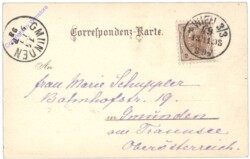 GMUNDEN
98
Correspondenz-Karte.
WIEN
An
frau Marie Schuppler
Bahnhofstr. 19.
in
Gmünden
am Traunsee
Oberösterreich